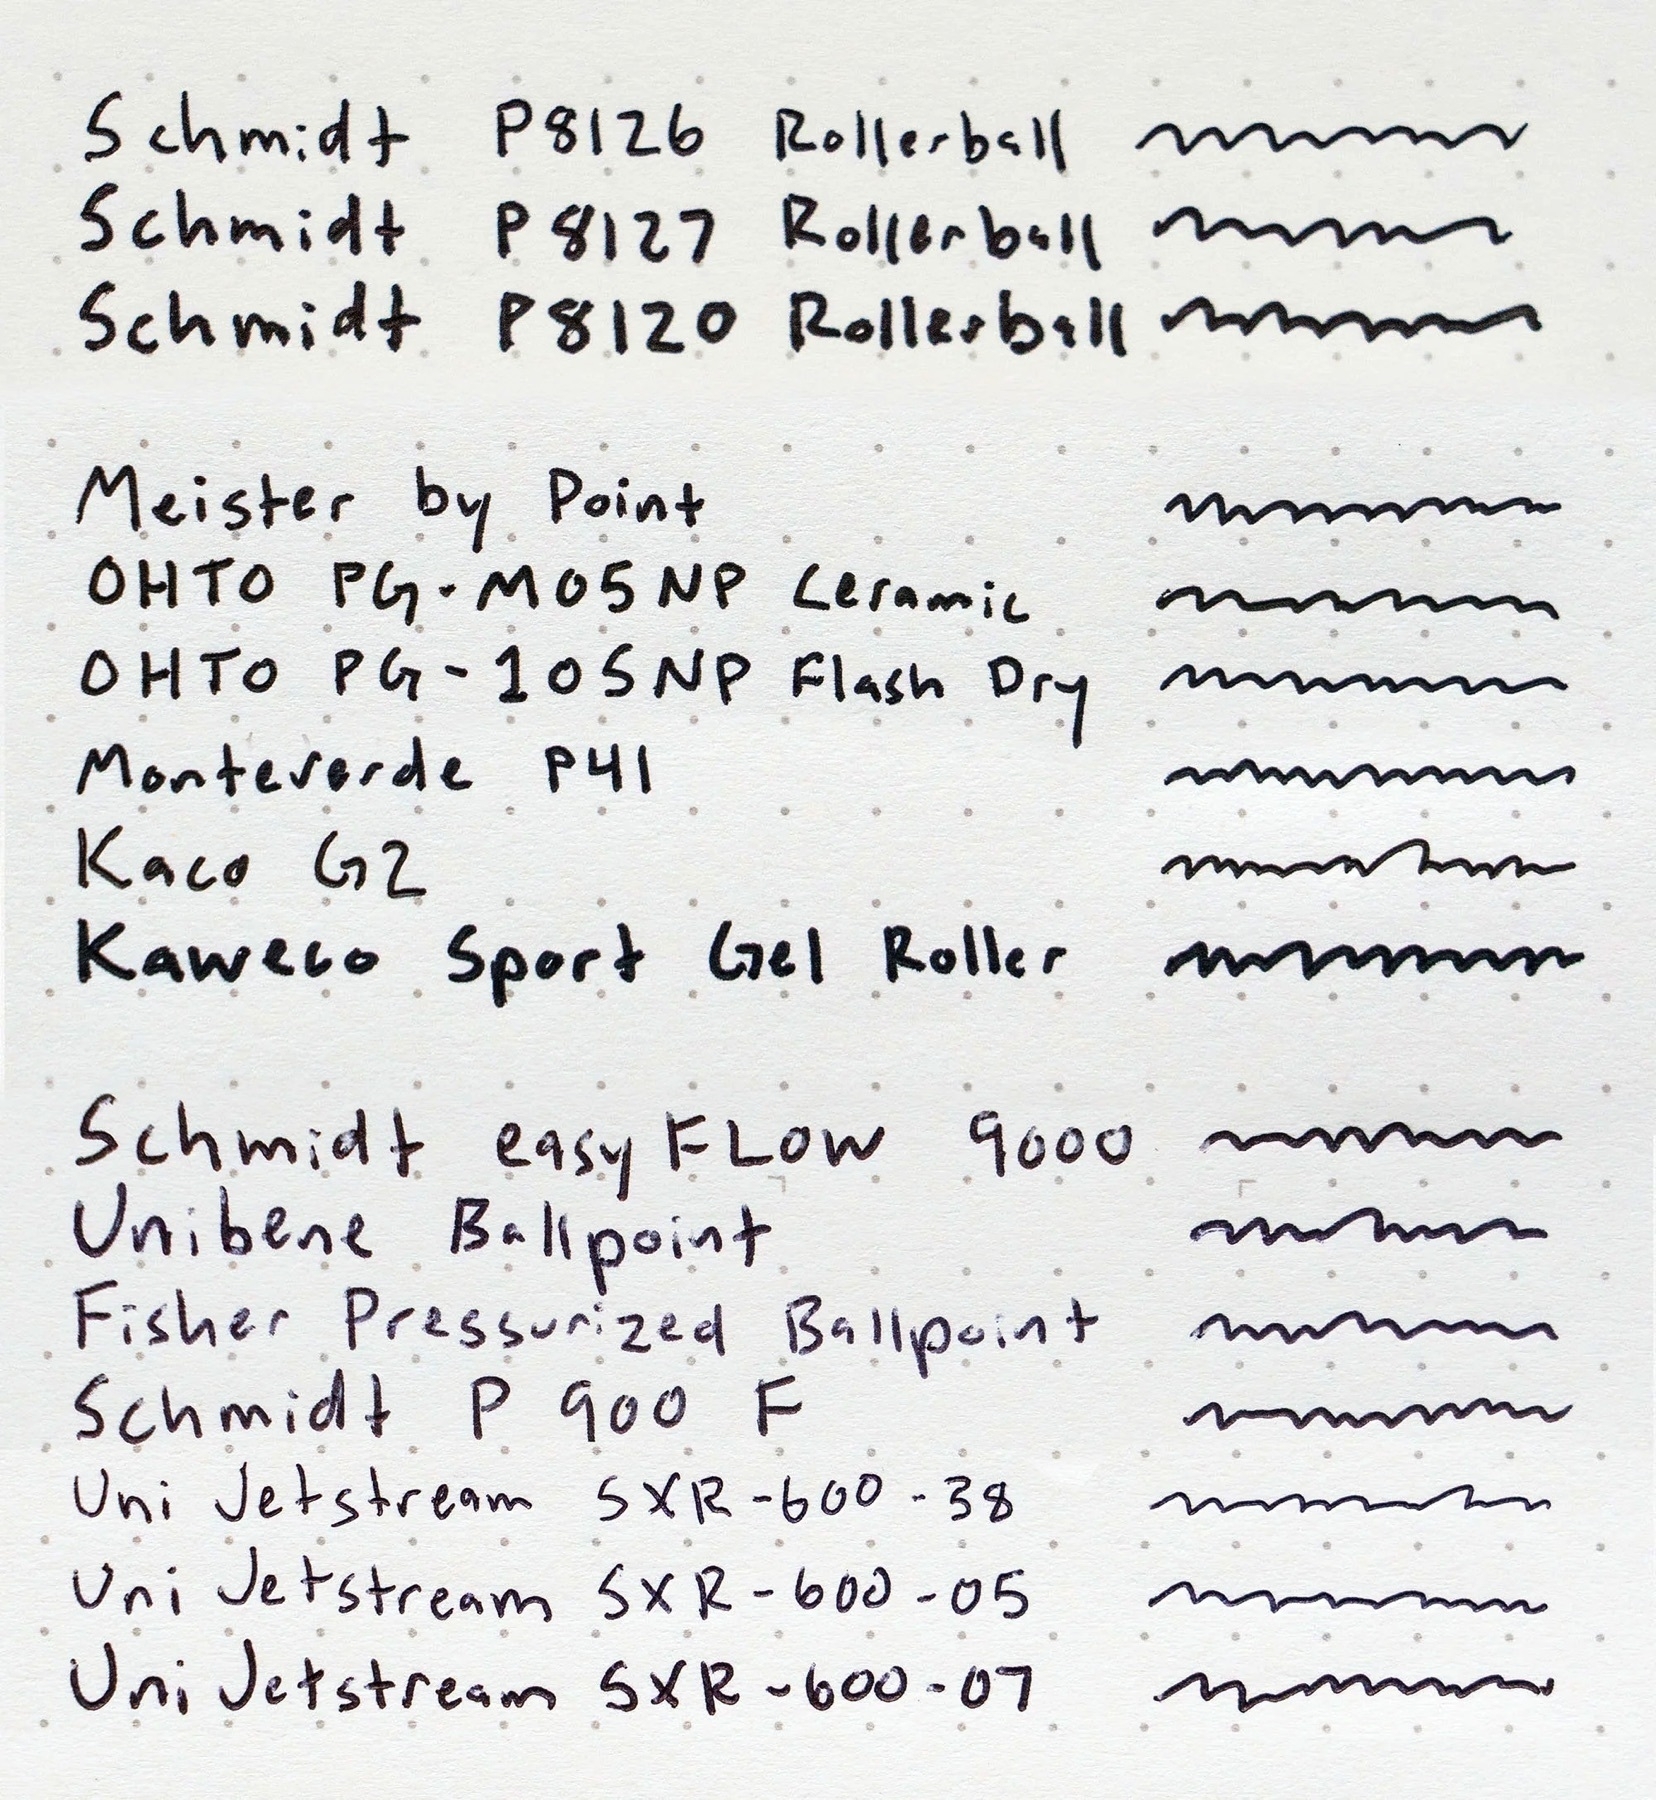 Schmidt P8126 Rollerball
Schmidt P8127 Rollerball
Schmidt P8120 Rollerball
Meister by Point
OHTO PG-M05NP Ceramic
OHTO PG-105NP Flash Dry
Monteverde P41
Kaco G2
Kaweco Sport Gel Roller
Schmidt easyFLOW 9000
Unibene Ballpoint
Fisher Pressurized Ballpoint
Schmidt P 900 F
Uni Jetstream SXR-600-38
Uni Jetstream SXR-600-05
Uni Jetstream SXR-600-07